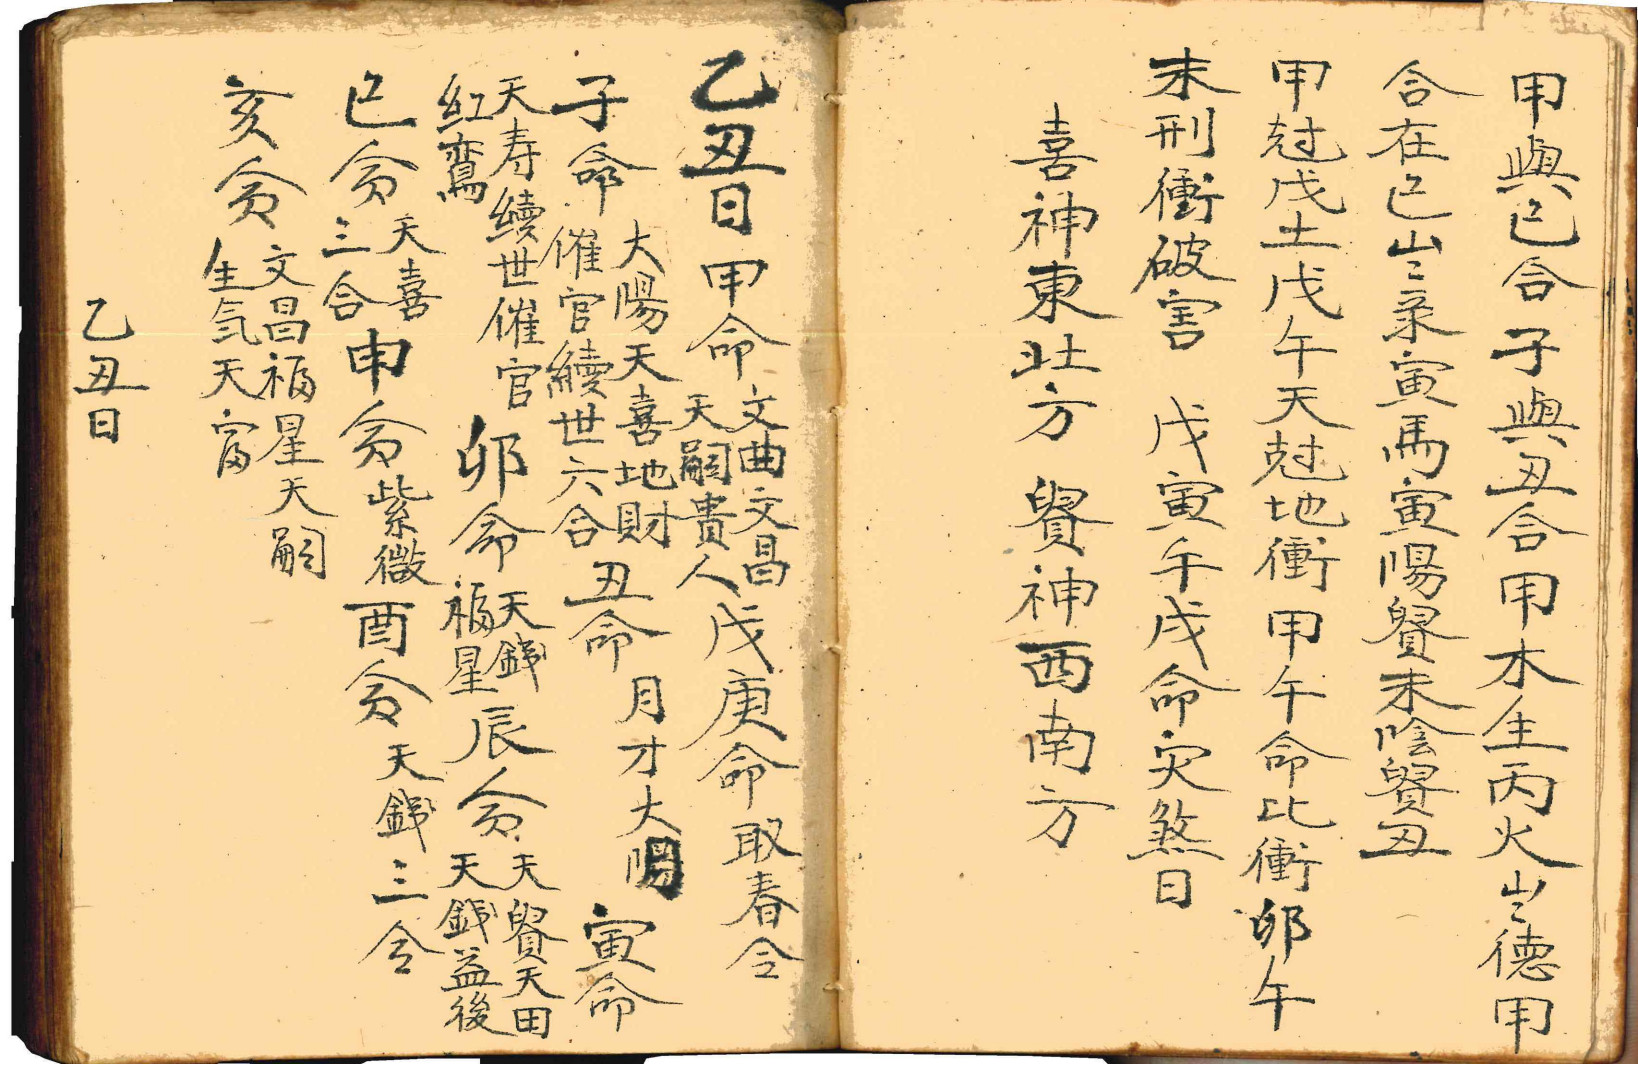 甲與已合子與丑合甲木生丙火岁德甲
合在已岁彔寅馬寅陽貴未陰貴丑
甲尅戊土戊午天尅地衝甲午命比衝卯午
未刑衝破害 戊寅午戌命灾煞日
喜神東北方 貴神西南方
乙丑日甲命 文曲文昌 天嗣貴人 戊庚命取春令
子命 大陽天喜地財 催官續世六合 丑命 月才大陽 寅命
天寿續世催官 紅鸞 卯命 天錢 福星 辰贪 天貴天田 天錢益後
已贪 天喜 三合 申贪 紫微 酉贪 天錢三合
亥贪 文昌福星天嗣 生氣天富
乙丑日